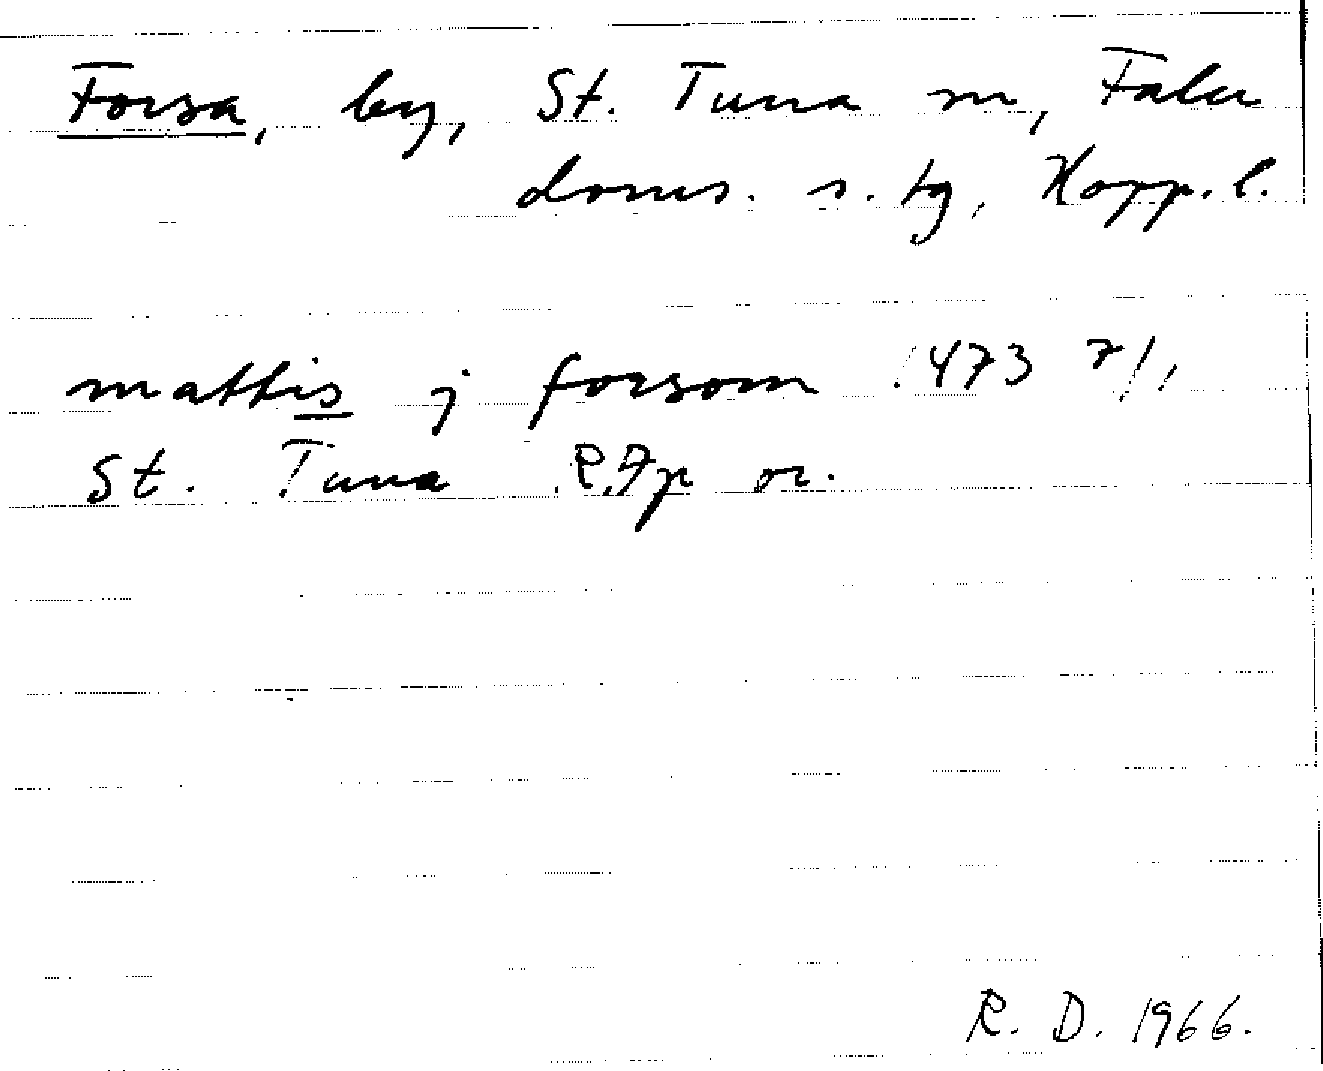 Forsa, by, St. Tuna sn, Falu
doms. s. tg, Kopp. l.
mattis j forsom 1473 7/1,
St. Tuna R.Ap or.
R. D. 1966.